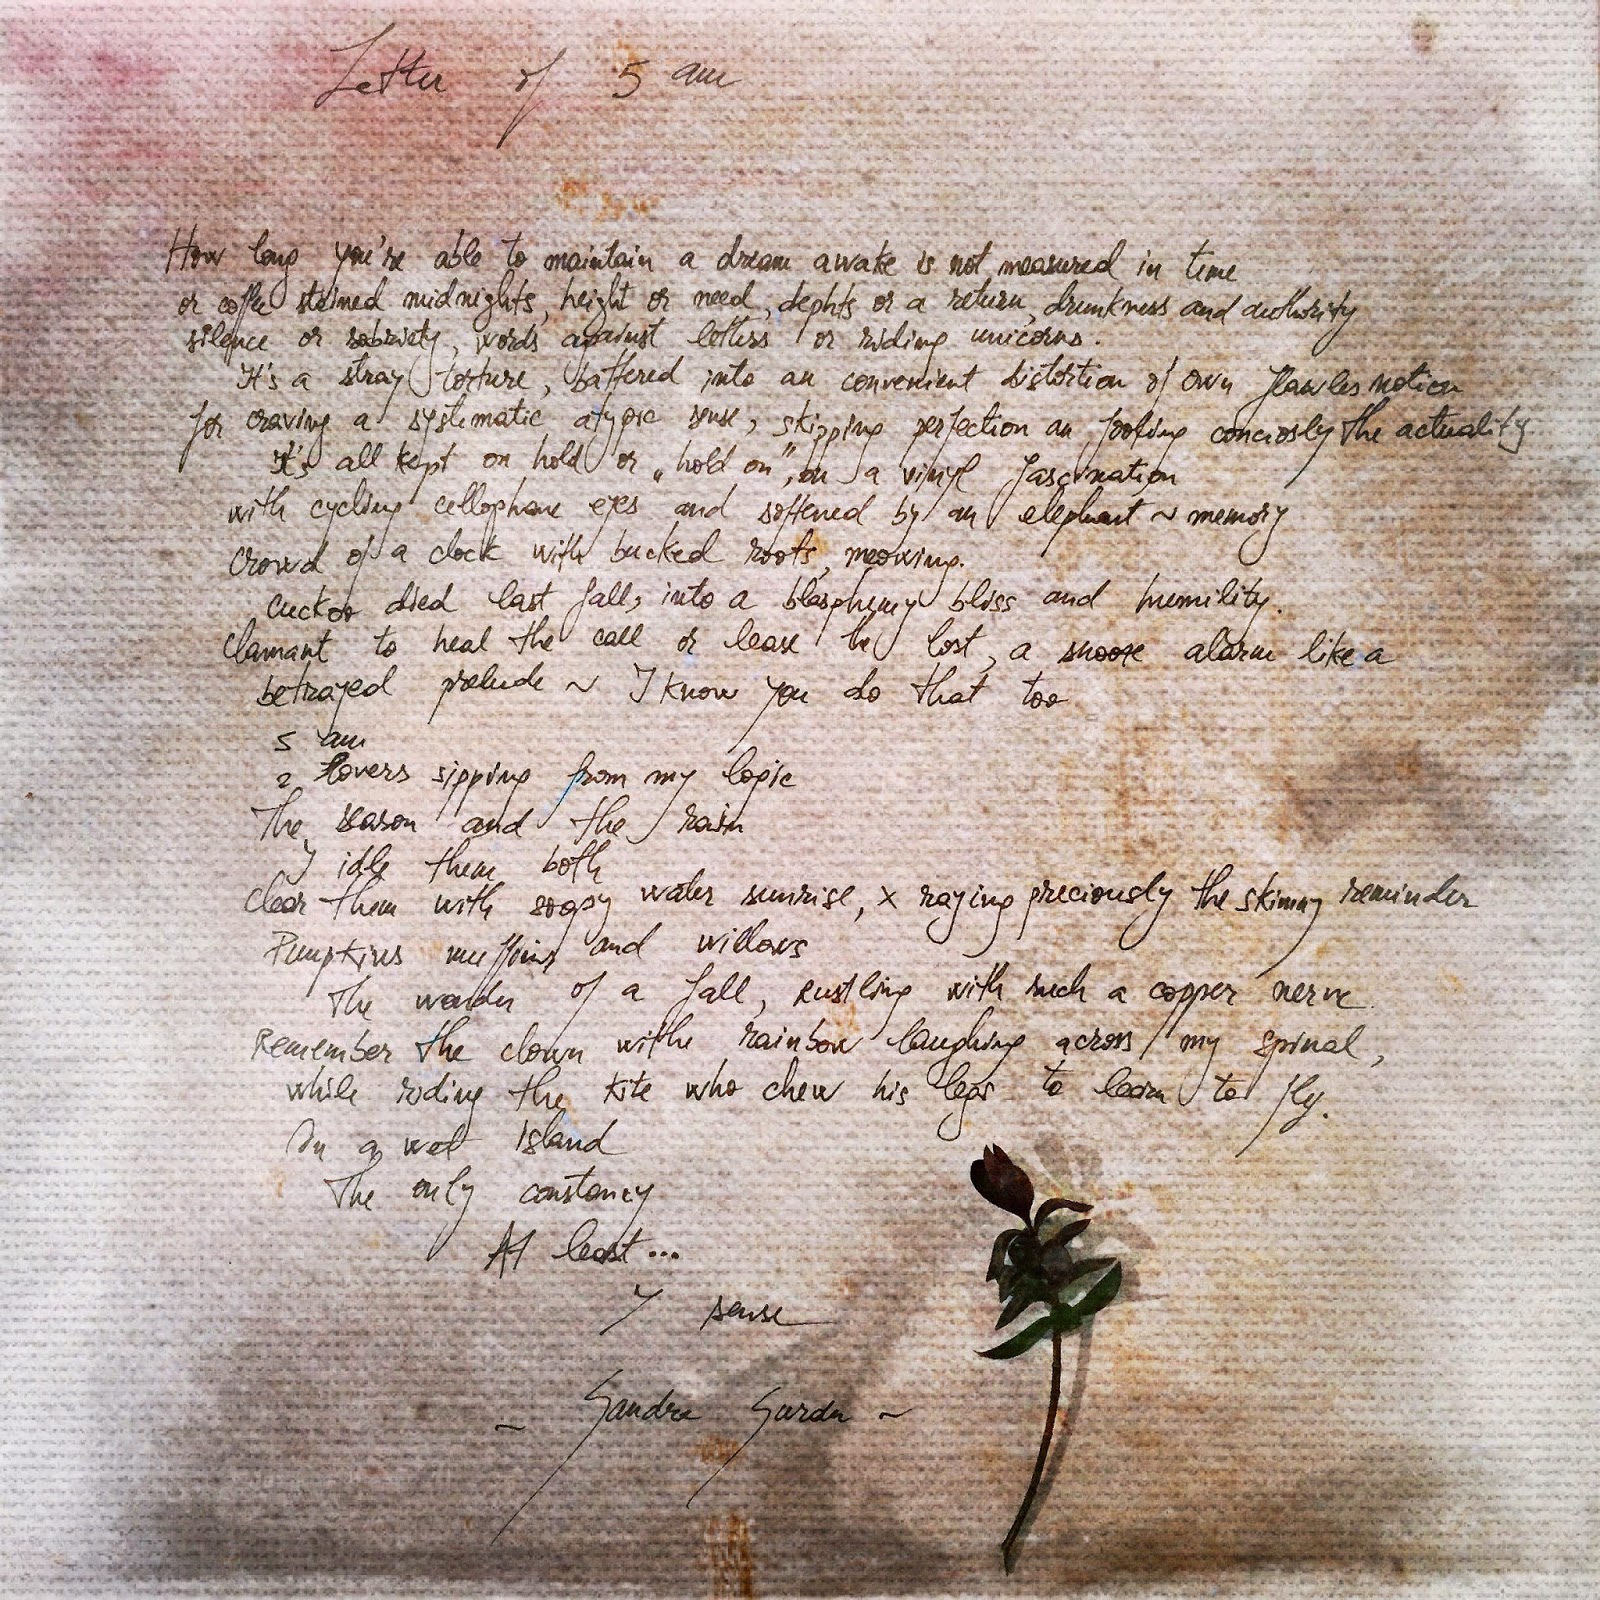 Letter of 5 am
How long you're able to maintain a dream awake is not measured in time
or coffee stained midnights, height or need, dephts or a return, drunkness and authority
silence or sobriety, words against letters or riding unicorns.
It's a stray torture, battered into an convenient distortion of own flawles notion
for craving a systematic atypic sense, skipping perfection an fooling conciosly the actuality
It's all kept on hold or „hold on", on a vinyl fascination
with cycling cellophane eyes and softened by an elephant ~ memory
Crowd of a clock with bucked roots, meowing.
Cuckoo died last fall, into a blasphemy bliss and humility.
Clamant to heal the call or lease the lost, a snooze alarm like a
betrayed prelude ~ I know you do that too
5 am
2 lovers sipping from my logic
The season and the rain
I idle them both
Clear them with soapy water sunrise, x raying preciously the skinny reminder
Pumpkins muffins and willows
The wonder of a fall, rustling with such a copper nerve
Remember the clown withe rainbow laughing across my spinal,
while riding the kite who chew his legs to learn to fly.
In a wet island
The only constancy
At least...
I sense
~ Sandra ~